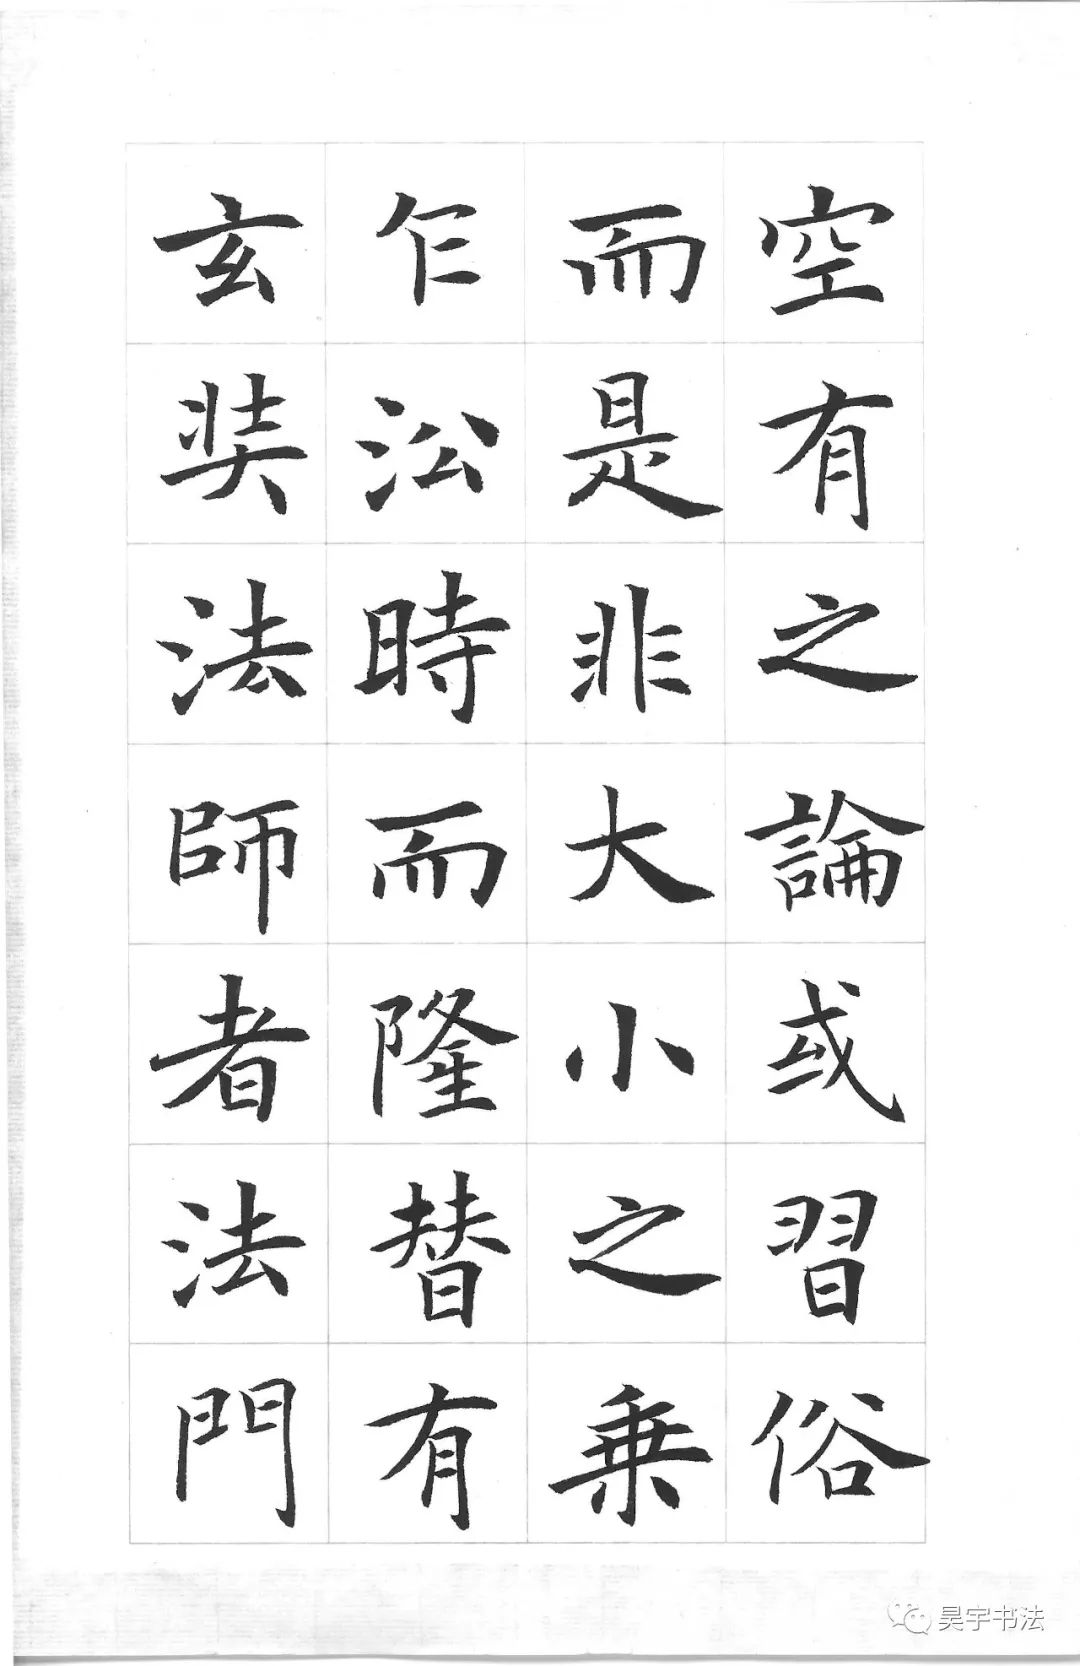 空有之論或習俗
而是非大小之乗
乍沿時而隆替有
玄奘法師者法門
昊宇书法